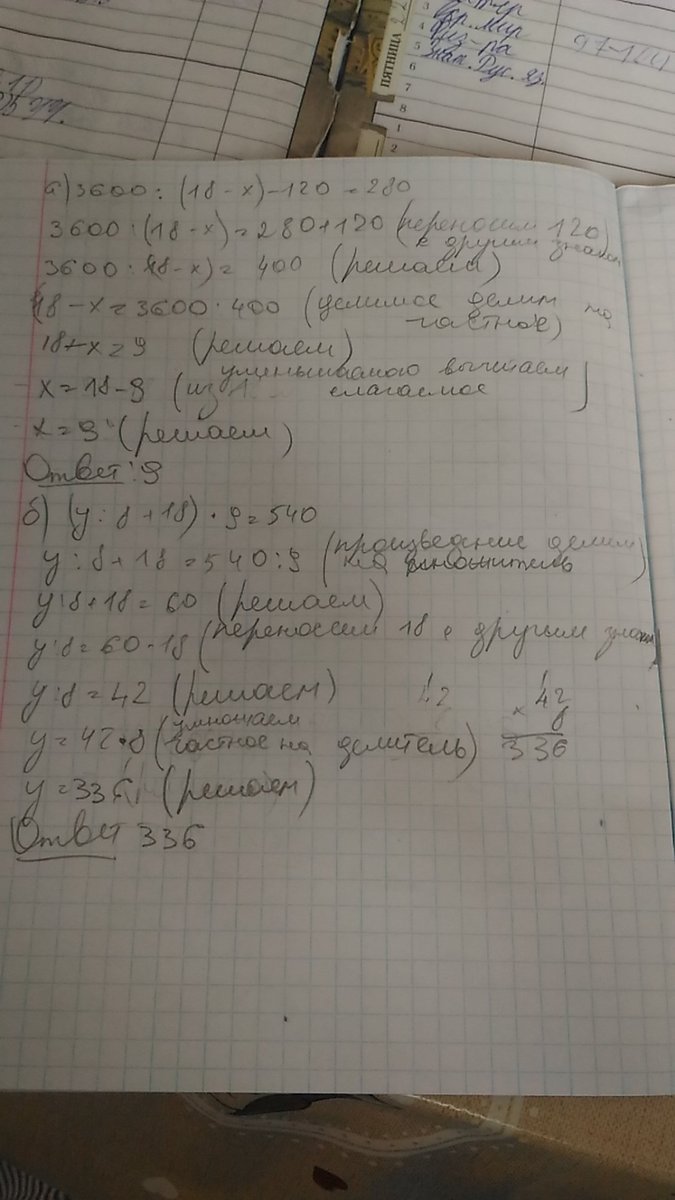 ПЯТНИЦА 22
3
4
5
6
7
8
1
2
97-
а) 3600 : (18 - х) - 120 = 280
3600 : (18 - х) = 280 + 120 (переносим 120 с другим знаком
3600 : (18 - х) = 400 (решаем)
18 - х = 3600 : 400 (делимое делим на частное)
18 - х = 9 (решаем)
х = 18 - 9 (из уменьшаемого вычитаем слагаемое)
х = 9 (решаем)
Ответ: 9
б) (у : 8 + 18) · 9 = 540
у : 8 + 18 = 540 : 9 (произведение делим на множитель)
у : 8 + 18 = 60 (решаем)
у : 8 = 60 - 18 (переносим 18 с другим знаком)
у : 8 = 42 (решаем)
у = 42 · 8 (умножаем частное на делитель)
у = 336 (решаем)
Ответ 336
1
42
× 8
336